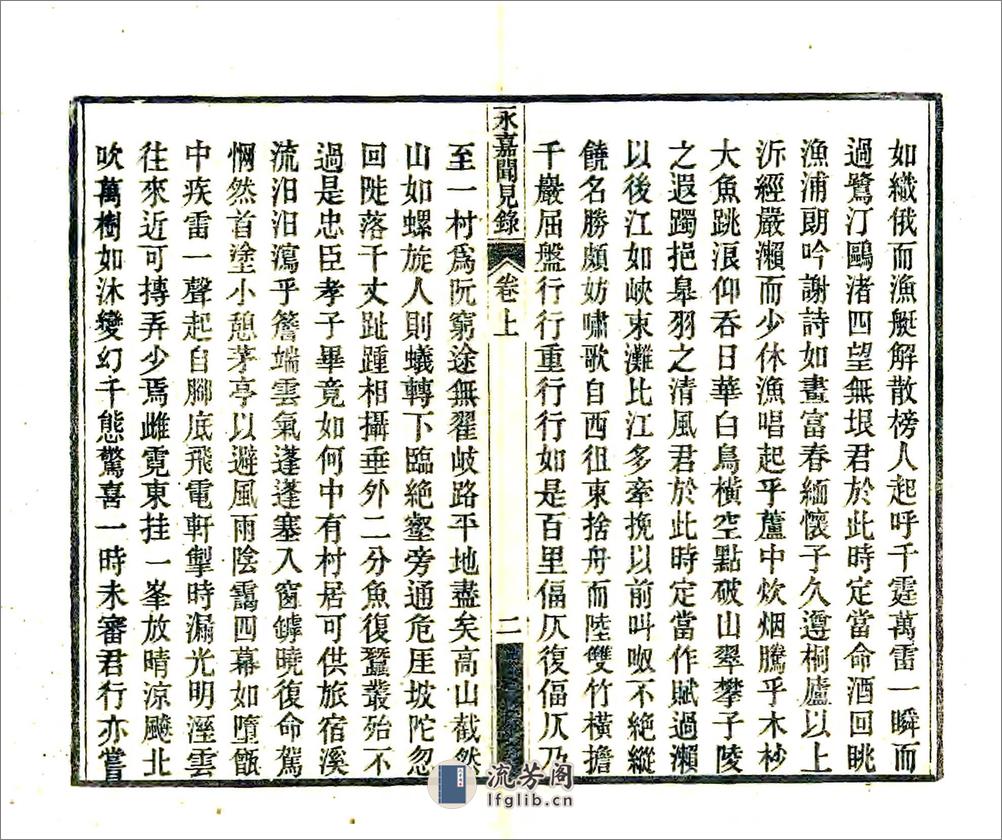 如織俄而漁艇解散榜人起呼千霆萬雷一瞬而
過鷺汀鷗渚四望無垠君於此時定當命酒回眺
漁浦朗吟謝詩如畫富春緬懷子久遵桐廬以上
泝經嚴瀨而少休漁唱起乎蘆中炊烟騰乎木杪
大魚跳浪仰吞日華白鳥橫空點破山翠攀子陵
之遐躅挹皋羽之清風君於此時定當作賦過瀨
以後江如峽束灘比江多牽挽以前叫呶不絕縱
饒名勝頗妨嘯歌自西徂東捨舟而陸雙竹橫擔
千巖屈盤行行重行行如是百里偪仄復偪仄乃
永嘉聞見錄
卷上
二
至一村爲阮窮途無翟岐路平地盡矣高山截然
山如螺旋人則蟻轉下臨絕壑旁通危厓坡陀忽
回陡落千丈趾踵相攝垂外二分魚復蠶叢殆不
過是忠臣孝子畢竟如何中有村居可供旅宿溪
流汩汩瀉乎簷端雲氣蓬蓬塞入窗罅曉復命駕
惘然首塗小憩茅亭以避風雨陰靄四幕如墮甑
中疾雷一聲起自腳底飛電軒掣時漏光明溼雲
往來近可摶弄少焉雌霓東挂一峯放晴涼飈北
吹萬樹如沐變幻千態驚喜一時未審君行亦嘗
流芳阁
lfglib.cn